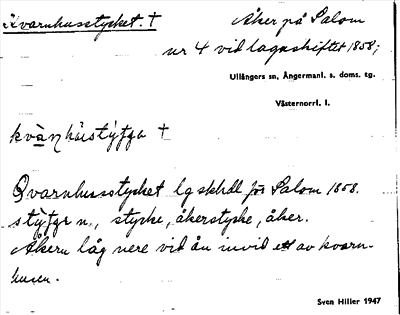 Kvarnhusstycket. † Åker på Salom
nr 4 vid lagaskiftet 1858;
Ullångers sn, Ångermanl. s. doms. tg.
Västernorrl. l.
Qvarnhusstycket lgskhdl för Salom 1858.
n., stycke, åkerstycke, åker.
Åkern låg nere vid ån invid ett av kvarn-
husen.
Sven Hiller 1947